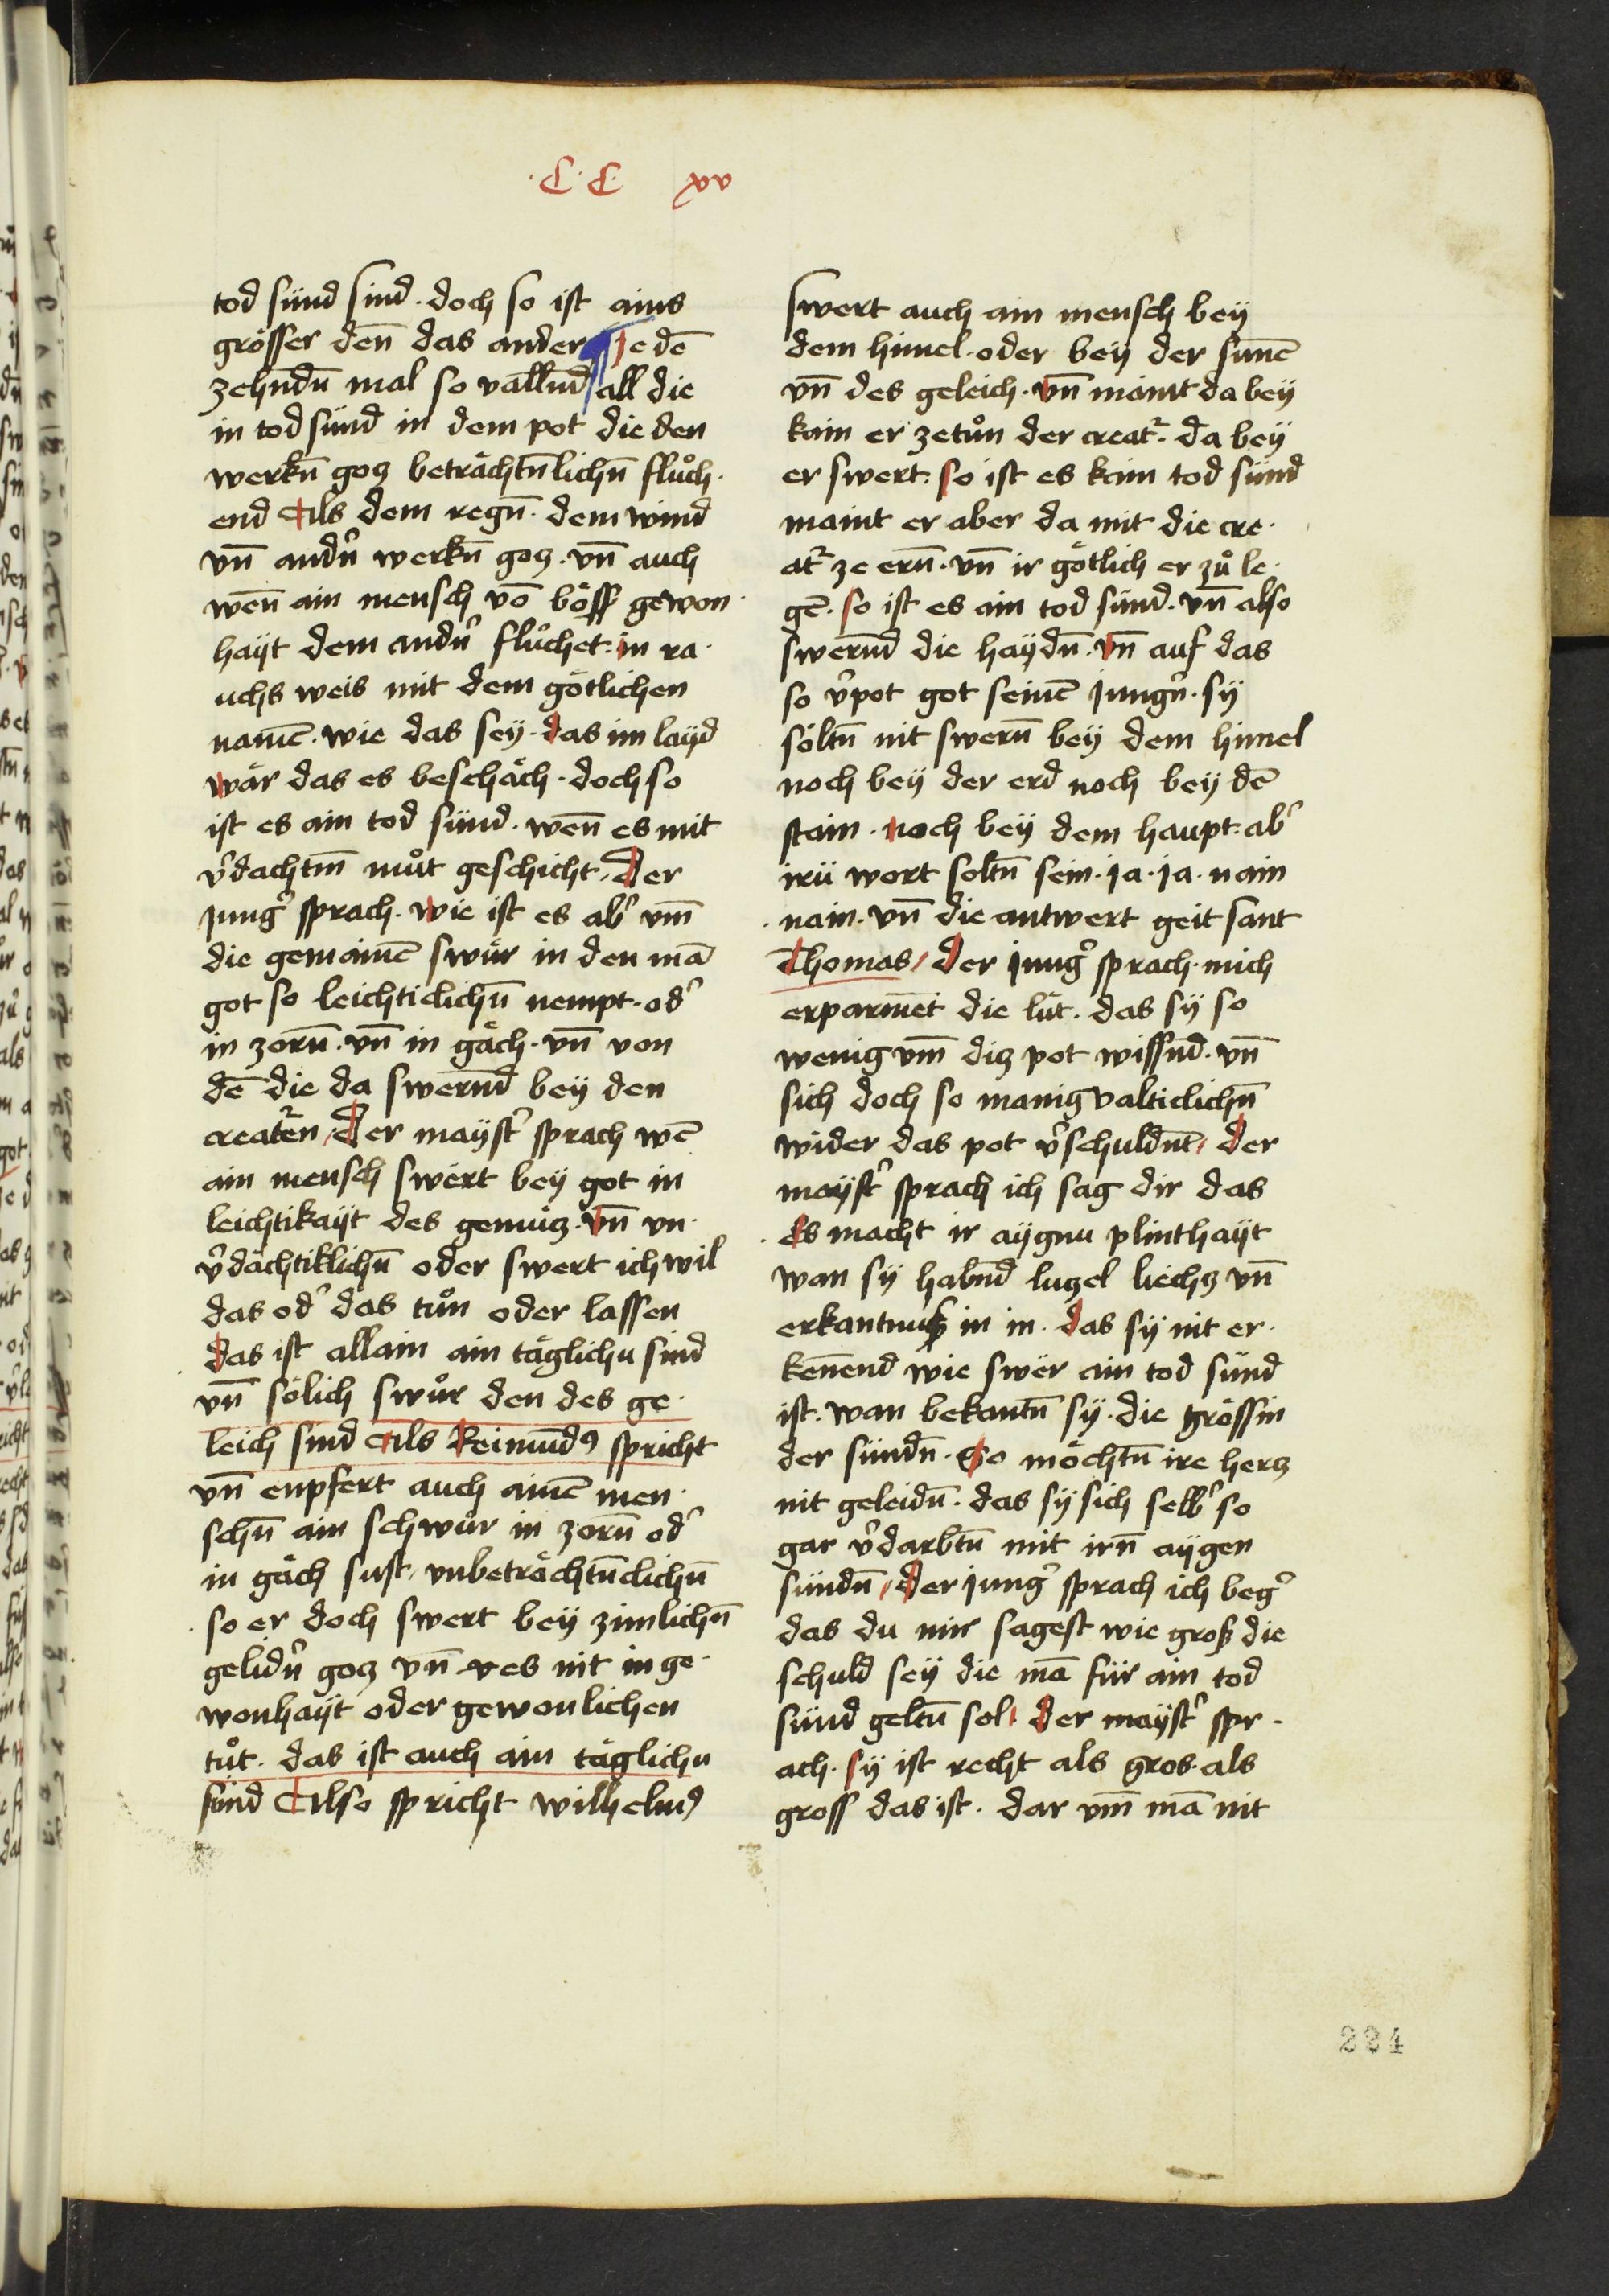 ·C·C· xv
tod sünd sind · doch so ist ains
grösser deñ das ander ¶ Ze dē
zehndn̄ mal so vallnd all die
in tod sünd in dem pot die den
werkn̄ gotz beträchtn̄lichn̄ flůch·
end Als dem regn̄ · dem wind
vn̄ andn̉ werkn̄ gotz · vn̄ auch
wen̄ ain mensch vō böss gewon·
hayt dem andn̉ flůchet · in ra·
uchs weis mit dem götlichen
namē · wie das sey · das im layd
wär das es beschäch · doch so
ist es ain tod sünd · wen̄ es mit
v̉dachtm̄ můt geschicht / Der
jung̉ sprach · wie ist es ab̉ vm̄
die gemainē swür in den mā
got so leichticlichn̄ nempt · od̉
in zorn̄ · vn̄ in gäch · vn̄ von
dē die da swernd bey den
creatᷣen / Der mayst̉ sprach wē
ain mensch swert bey got in
leichtikayt des gemütz · vn̄ vn·
v̉dächtiklichn̄ oder swert ich wil
das od̉ das tůn oder lassen
das ist allain ain täglichu sünd
vn̄ sölich swůr den des ge·
leich sind Als Reimundꝰ spricht
vn̄ enpfert auch ainē men·
schn̄ ain schwůr in zorn̄ od̉
in gäch sust / vnbeträchtn̄clichn̄
so er doch swert bey zimlichn̄
gelidn̉ gotz vn̄ es nit in ge·
wonhayt oder gewonlichen
tůt · das ist auch ain täglichu
sünd Also spricht wilhelmꝰ
swert auch ain mensch bey
dem himel · oder bey der sunē
vn̄ des geleich · vn̄ maint da bey
kain er zetůn der creatᷣ · da bey
er swert · so ist es kain tod sünd
maint er aber da mit die cre·
atᷣ ze ern̄ · vn̄ ir götlich er zů le·
gē · so ist es ain tod sünd · vn̄ also
swernd die haydn̄ · vn̄ auf das
so v̉pot got seinē jungn̉ · sy
söltn̄ nit swern̄ bey dem himel
noch bey der erd noch bey dē
stain · noch bey dem haupt · ab̉
irü wort soltn̄ sein · ja · ja · nain
nain · vn̄ die antwert geit sant
Thomas / Der jung̉ sprach · mich
erparmet die lüt · das sy so
wenig vm̄ ditz pot wissnd · vn̄
sich doch so manigvalticlichn̄
wider das pot v̉schuldnt / der
mayst̉ sprach ich sag dir das
es macht ir aygnu plinthayt
wan sy habnd lutzel liechtz vn̄
erkantnuß in in · das sy nit er·
kennend wie swer ain tod sünd
ist · wan bekantn̄ sy · die grössin
der sündn̄ · So möchtn̄ ire hertz
nit geleidn̄ · das sy sich selb̉ so
gar v̉darbtn̄ mit irn̄ aygen
sündn̄ / Der jung̉ sprach ich beg̉
das du mir sagest wie groß die
schuld sey die mā für ain tod
sünd geltn̄ sol / der mayst̉ spr·
ach · sy ist recht als gros · als
gross das ist · dar vm̄ mā nit
224